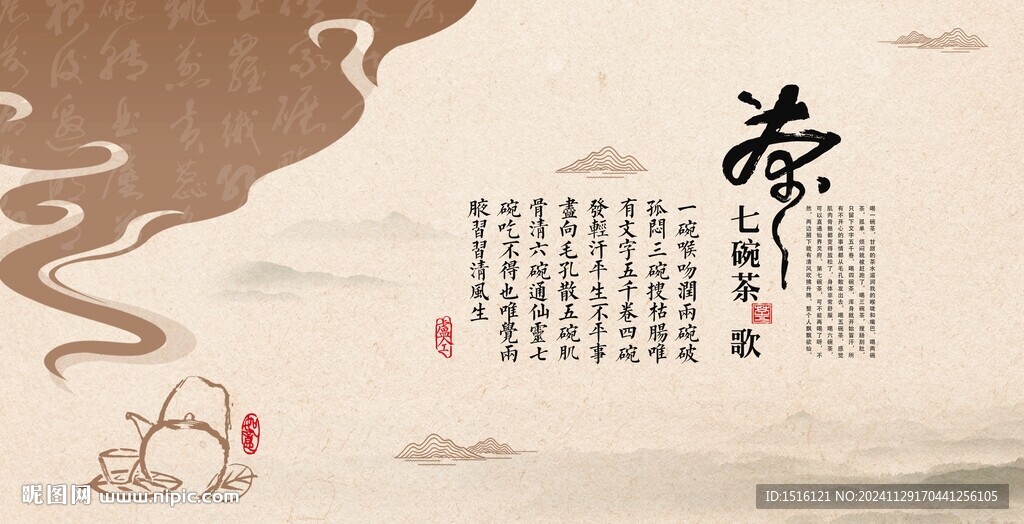 喝一碗茶，甘甜的茶水滋润我的喉咙和嘴巴。喝两碗
茶，孤单、烦闷就被赶跑了。喝三碗茶，搜肠刮肚，
只留下文字五千卷。喝四碗茶，浑身就开始冒汗，所
有不开心的事情都从毛孔散发出去。喝五碗茶，感觉
肌肉骨骼都变得放松了，身体非常舒服。喝六碗茶，
可以直通仙界灵府。第七碗茶，可不能再喝了呀，不
然，两边腋下就有清风吹拂升腾，整个人飘飘欲仙。
茶
七碗茶歌
一碗喉吻潤兩碗破
孤悶三碗搜枯腸唯
有文字五千卷四碗
發輕汗平生不平事
盡向毛孔散五碗肌
骨清六碗通仙靈七
碗吃不得也唯覺兩
腋習習清風生
盧仝
如意
昵图网 www.nipic.com
ID:1516121 NO:20241129170441256105